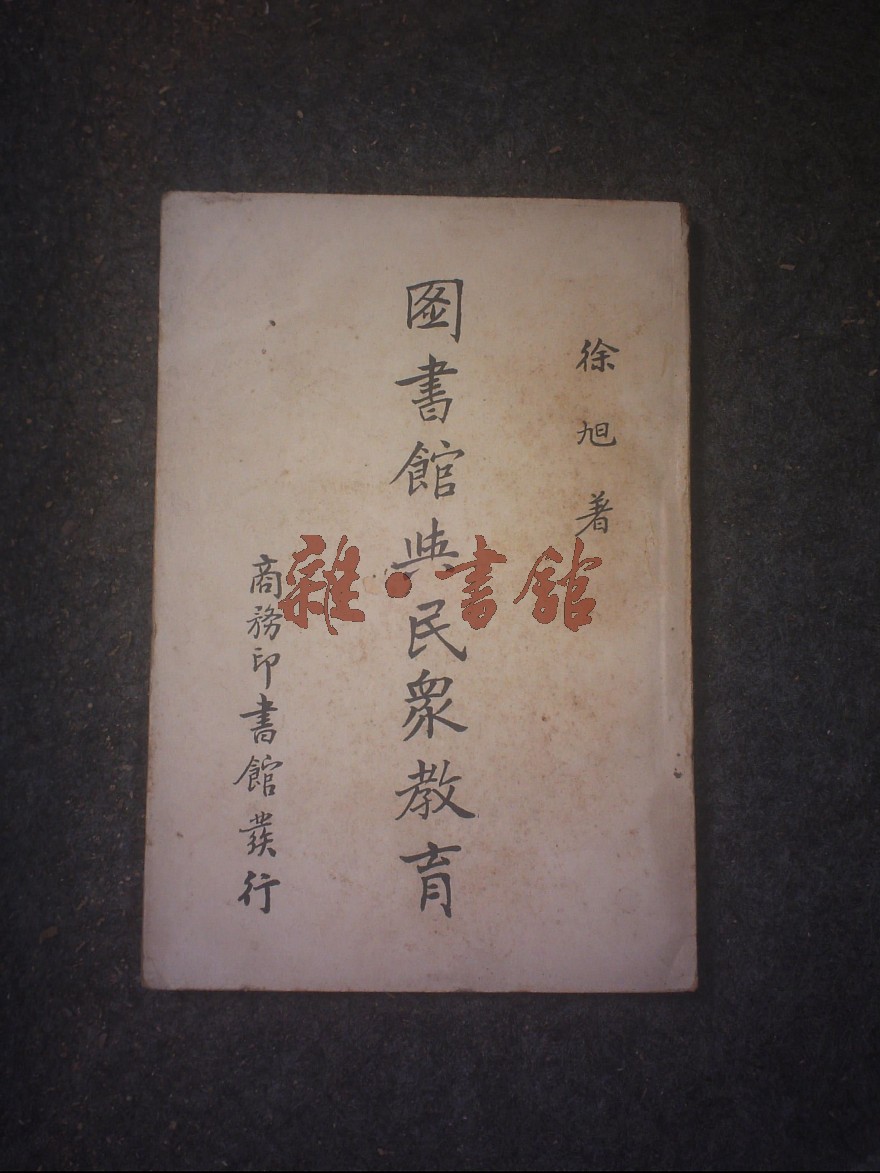 徐旭著
圖書館與民衆教育
商務印書館發行
雜·書館